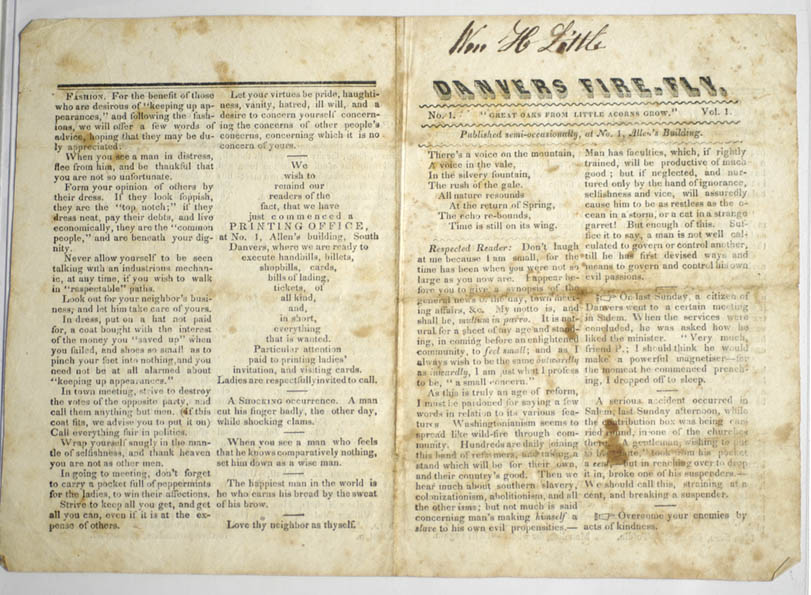 FASHION. For the benefit of those
who are desirous of "keeping up ap-
pearances," and following the fash-
ions, we will offer a few words of
advice, hoping that they may be du-
ly appreciated:
When you see a man in distress,
flee from him, and be thankful that
you are not so unfortunate.
Form your opinion of others by
their dress. If they look foppish,
they are the "top notch;" if they
dress neat, pay their debts, and live
economically, they are the "common
people," and are beneath your dig-
nity.
Never allow yourself to be seen
talking with an industrious mechan-
ic, at any time, if you wish to walk
in "respectable" paths.
Look out for your neighbor's busi-
ness; and let him take care of yours.
In dress, put on a hat not paid
for, a coat bought with the interest
of the money you "saved up" when
you failed, and shoes so small as to
pinch your feet into nothing, and you
need not be at all alarmed about
"keeping up appearances."
In town meeting, strive to destroy
the votes of the opposite party, and
call them anything but men. (If this
coat fits, we advise you to put it on)
Call everything fair in politics.
Wrap yourself snugly in the man-
tle of selfishness, and thank heaven
you are not as other men.
In going to meeting, don't forget
to carry a pocket full of peppermints
for the ladies, to win their affections.
Strive to keep all you get, and get
all you can, even if it is at the ex-
pense of others.
Let your virtues be pride, haughti-
ness, vanity, hatred, ill will, and a
desire to concern yourself concern-
ing the concerns of other people's
concerns, concerning which it is no
concern of yours.
We
wish to
remind our
readers of the
fact, that we have
just commenced a
PRINTING OFFICE,
at No. 1, Allen's building, South
Danvers, where we are ready to
execute handbills, billets,
shopbills, cards,
bills of lading,
tickets, of
all kind,
and,
in short,
everything
that is wanted.
Particular attention
paid to printing ladies'
invitation, and visiting cards.
Ladies are respectfully invited to call.
A SHOCKING OCCURRENCE. A man
cut his finger badly, the other day,
while shocking clams.
When you see a man who feels
that he knows comparatively nothing,
set him down as a wise man.
The happiest man in the world is
he who earns his bread by the sweat
of his brow.
Love thy neighbor as thyself.
Wm H Little
DANVERS FIRE-FLY.
No. 1. "GREAT OAKS FROM LITTLE ACORNS GROW." Vol. 1.
Published semi-occasionally, at No. 1, Allen's Building.
There's a voice on the mountain,
A voice in the vale,
In the silvery fountain,
The rush of the gale.
All nature resounds
At the return of Spring,
The echo re-bounds,
Time is still on its wing.
Respected Reader: Don't laugh
at me because I am small, for the
time has been when you were not so
large as you now are. I appear be-
fore you to give a synopsis of the
general news of the day, town meet-
ing affairs, &c. My motto is, and
shall be, multum in parvo. It is nat-
ural for a sheet of my age and stand-
ing, in coming before an enlightened
community, to feel small; and as I
always wish to be the same outwardly
as inwardly, I am just what I profess
to be, "a small concern."
As this is truly an age of reform,
I must be pardoned for saying a few
words in relation to its various fea-
tures Washingtonianism seems to
spread like wild-fire through com-
munity. Hundreds are daily joining
this band of reformers, and taking a
stand which will be for their own,
and their country's good. Then we
hear much about southern slavery,
colonizationism, abolitionism, and all
the other isms; but not much is said
concerning man's making himself a
slave to his own evil propensities.—
Man has faculties, which, if rightly
trained, will be productive of much
good; but if neglected, and nur-
tured only by the hand of ignorance,
selfishness and vice, will assuredly
cause him to be as restless as the o-
cean in a storm, or a cat in a strange
garret! But enough of this. Suf-
fice it to say, a man is not well cal-
culated to govern or control another,
till he has first devised ways and
means to govern and control his own
evil passions.
☞ On last Sunday, a citizen of
Danvers went to a certain meeting
in Salem. When the services were
concluded, he was asked how he
liked the minister. "Very much,
friend P.; I should think he would
make a powerful magnetiser—for
the moment he commenced preach-
ing, I dropped off to sleep.
A serious accident occurred in
Salem, last Sunday afternoon, while
the contribution box was being car-
ried round, in one of the churches
there. A gentleman, wishing to
took from his pocket
a cent, but in reaching over to drop
it in, broke one of his suspenders.—
We should call this, straining at a
cent, and breaking a suspender.
☞ Overcome your enemies by
acts of kindness.